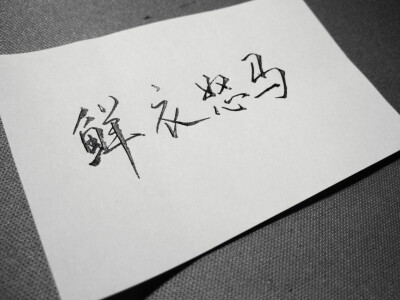 鲜衣怒马